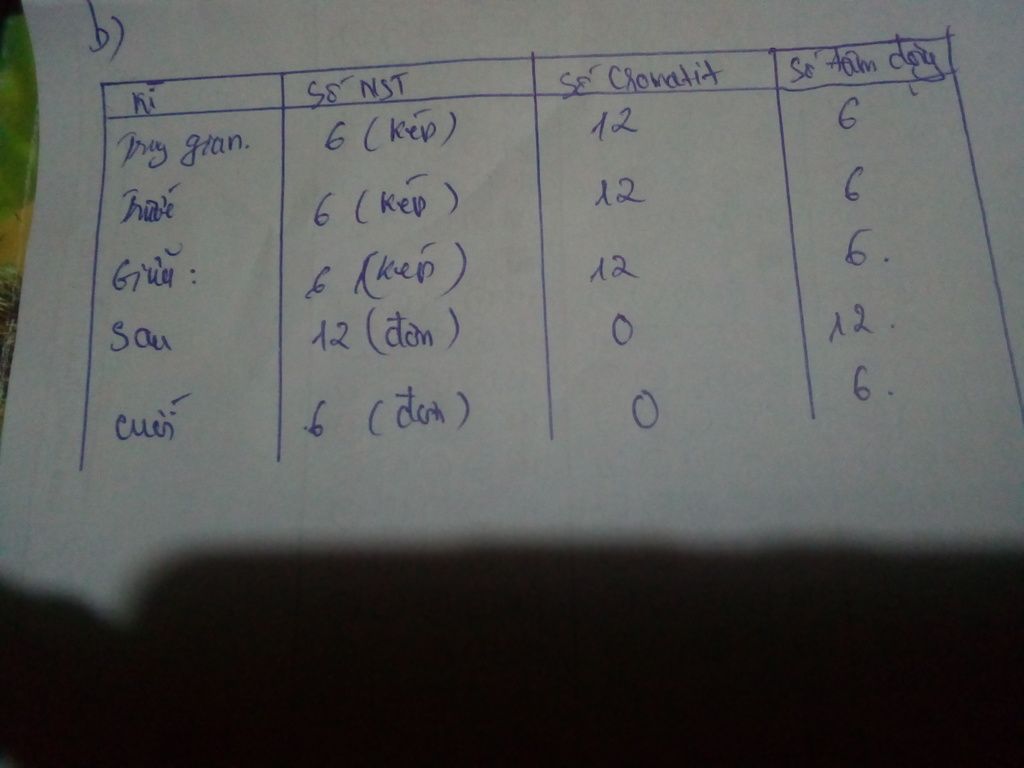 b)
Kì Số NST Số Cromatit Số tâm động
Trug gian. 6 (kép) 12 6
Trước 6 (kép) 12 6
Giữa : 6 (kép) 12 6.
Sau 12 (đơn) 0 12.
Cuối 6 (đơn) 0 6.